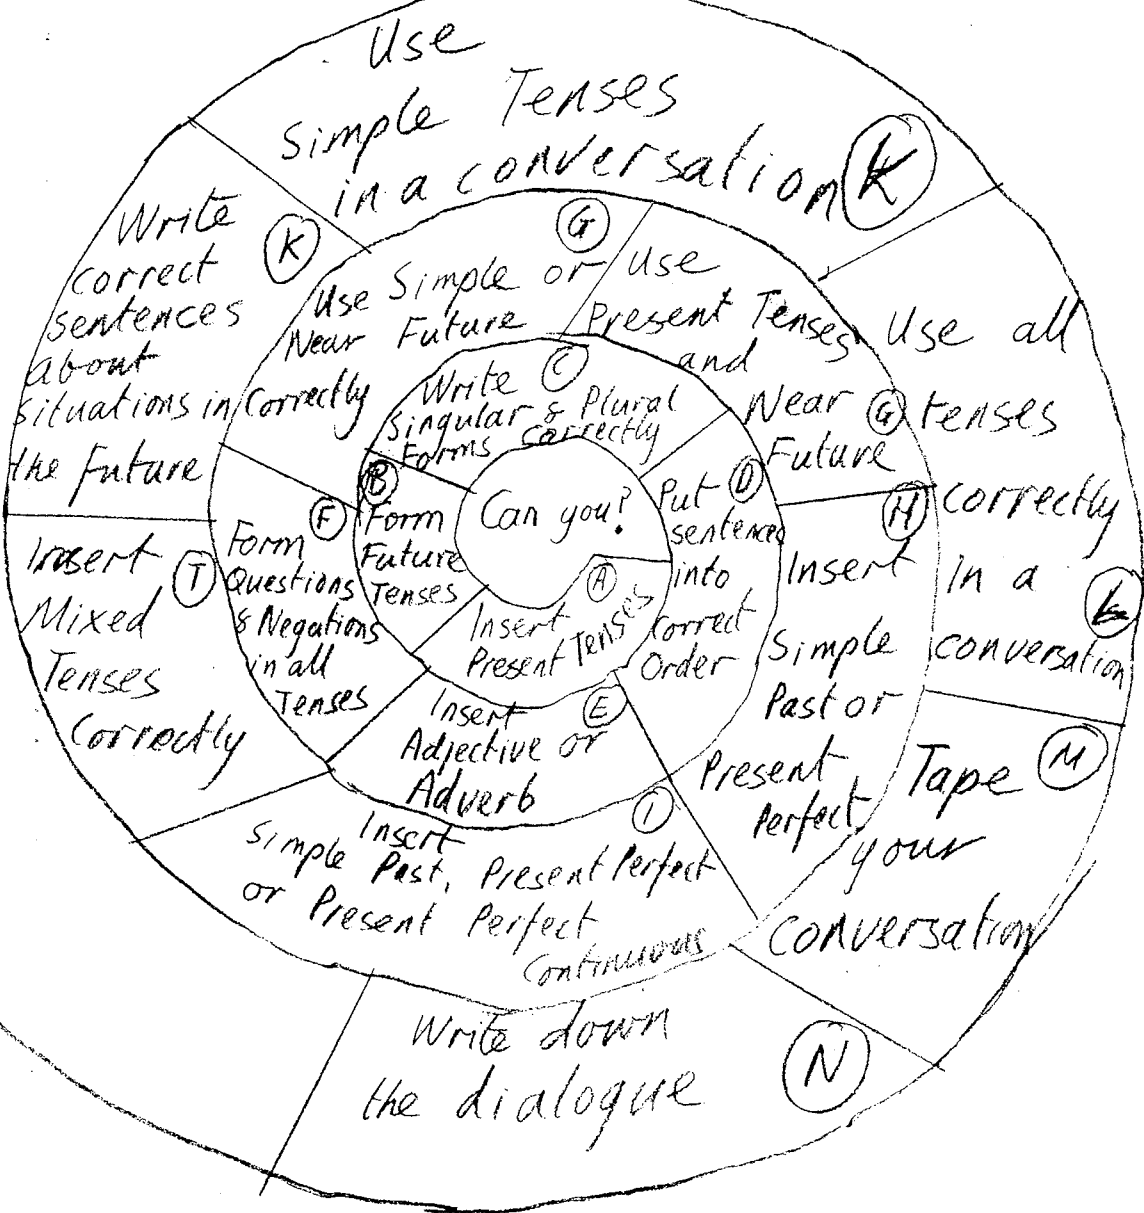 Can you?
A
Insert
Present Tenses
B
Form
Future
Tenses
C
Write
Singular & Plural
Forms correctly
D
Put
sentences
into
correct
Order
E
Insert
Adjective or
Adverb
F
Form
Questions
& Negations
in all
Tenses
G
Use Simple or
Near Future
Correctly
Use
Present Tenses
and
Near G
Future
H
Insert
Simple
Past or
Present
Perfect
I
Insert
Simple Past, Present Perfect
or Present Perfect
Continuous
T
Insert
Mixed
Tenses
Correctly
K
Write
correct
sentences
about
situations in
the Future
Use
Simple Tenses
in a conversation K
Use all
tenses
correctly
in a
conversation
L
M
Tape
your
conversation
N
Write down
the dialogue